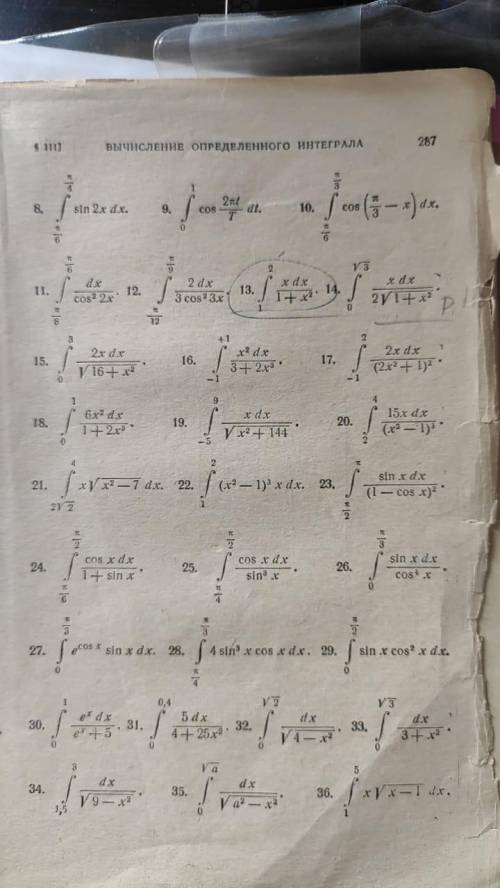 § III] ВЫЧИСЛЕНИЕ ОПРЕДЕЛЕННОГО ИНТЕГРАЛА 287
8. ∫_{π/6}^{π/4} sin 2x dx. 9. ∫_{0}^{1} cos (2πt/T) dt. 10. ∫_{π/6}^{π/3} cos (π/3 − x) dx.
11. ∫_{π/8}^{π/6} dx/(cos² 2x). 12. ∫_{π/12}^{π/9} 2 dx/(3 cos² 3x). 13. ∫_{1}^{2} x dx/(1 + x²). 14. ∫_{0}^{√3} x dx/(2√(1 + x²)).
15. ∫_{0}^{3} 2x dx/√(16 + x²). 16. ∫_{−1}^{+1} x² dx/(3 + 2x³). 17. ∫_{−1}^{2} 2x dx/(2x² + 1)².
18. ∫_{0}^{1} 6x² dx/(1 + 2x³). 19. ∫_{−5}^{9} x dx/√(x² + 144). 20. ∫_{2}^{4} 15x dx/(x² − 1)³.
21. ∫_{2√2}^{4} x√(x² − 7) dx. 22. ∫_{1}^{2} (x² − 1)³ x dx. 23. ∫_{π/2}^{π} sin x dx/(1 − cos x)².
24. ∫_{π/6}^{π/2} cos x dx/(1 + sin x). 25. ∫_{π/4}^{π/2} cos x dx/sin³ x. 26. ∫_{0}^{π/3} sin x dx/cos⁴ x.
27. ∫_{0}^{π/3} e^{cos x} sin x dx. 28. ∫_{π/4}^{π/3} 4 sin³ x cos x dx. 29. ∫_{0}^{π/2} sin x cos² x dx.
30. ∫_{0}^{1} eˣ dx/(eˣ + 5). 31. ∫_{0}^{0,4} 5 dx/(4 + 25x²). 32. ∫_{0}^{√2} dx/√(4 − x²). 33. ∫_{0}^{√3} dx/(3 + x²).
34. ∫_{1,5}^{3} dx/√(9 − x²). 35. ∫_{0}^{√a} dx/√(a² − x²). 36. ∫_{1}^{5} x√(x − 1) dx.